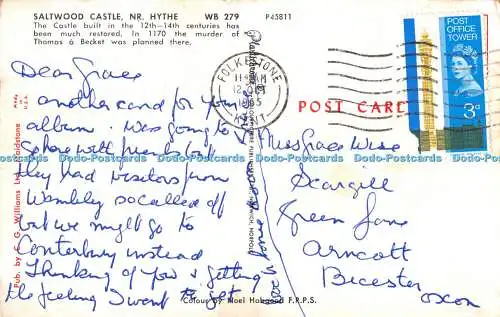 SALTWOOD CASTLE, NR. HYTHE WB 279 P45811
The Castle built in the 12th-14th centuries has
been much restored. In 1170 the murder of
Thomas à Becket was planned there,
Dear Grace
another card for your
album. Was going to
with friends but
they had visitors from
Wembley so called off
but we might go to
Canterbury instead
Thinking of you & getting
the feeling I want to get
FOLKESTONE
KENT
POST CARD
POST
OFFICE
TOWER
3d
Miss Grace Wise
Scargill
Green Lane
Arncott
Bicester
Oxon
Pub. by C. G. Williams Ltd. Maidstone
MADE
Colour by Noel Habgood F.R.P.S.
Dado-Postcards Dado-Postcards Dado-Postcards Dado-Postcards Dado-Postcards Dado-Postcards